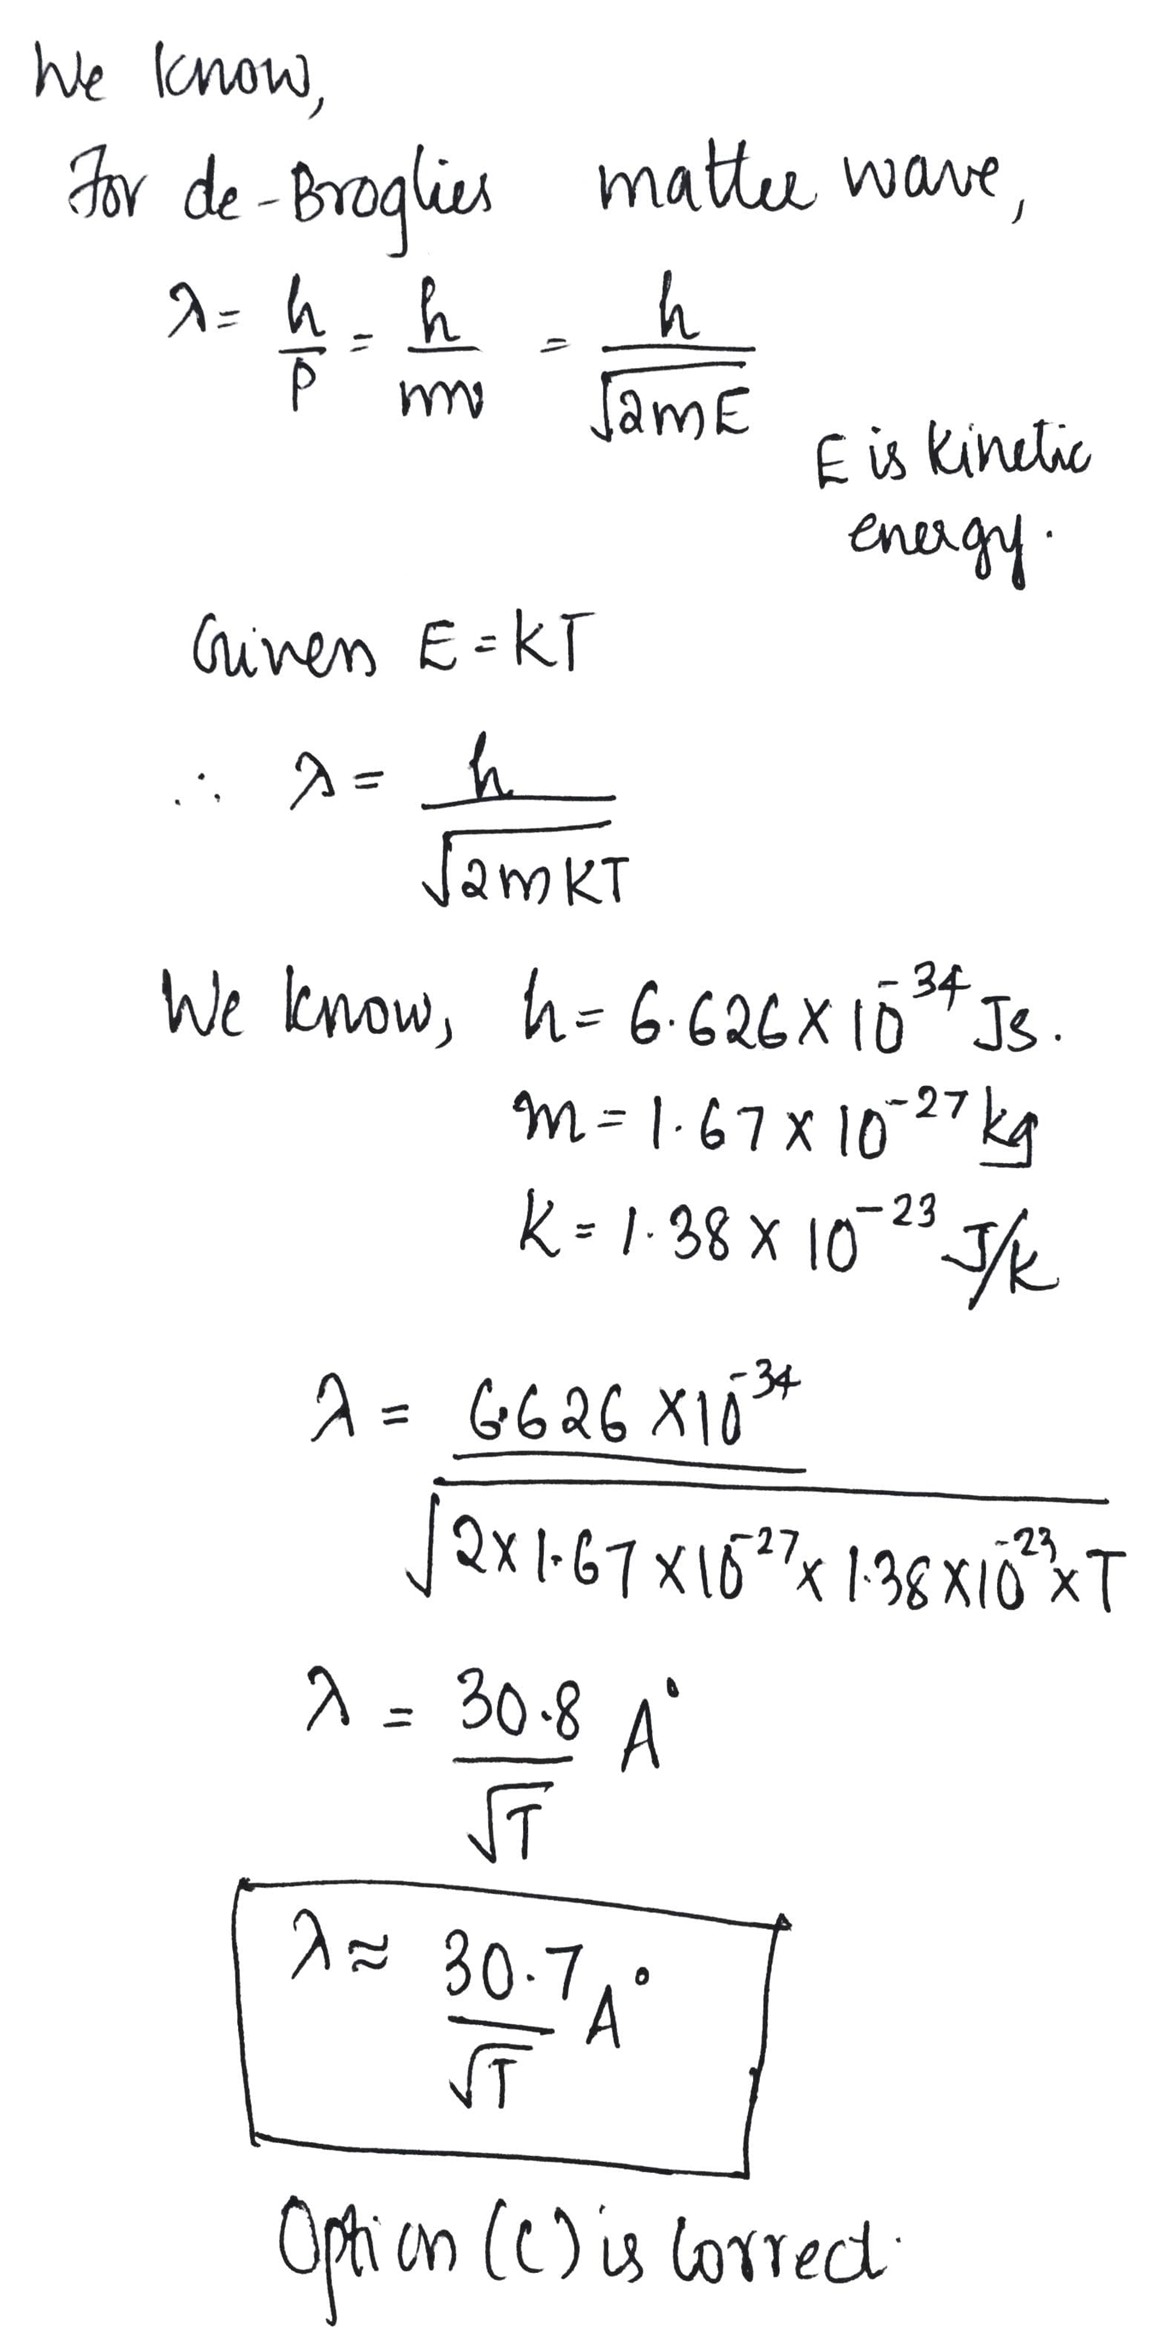 We know,
For de-Broglies matter wave,
λ = h/p = h/mv = h/√2mE
E is kinetic
energy.
Given E = KT
∴ λ = h/√2mKT
We know, h = 6.626 x 10^-34 Js.
m = 1.67 x 10^-27 kg
K = 1.38 x 10^-23 J/k
λ = 6.626 x 10^-34/√2 x 1.67 x 10^-27 x 1.38 x 10^-23 x T
λ = 30.8/√T A°
λ ≈ 30.7/√T A°
Option (C) is correct.